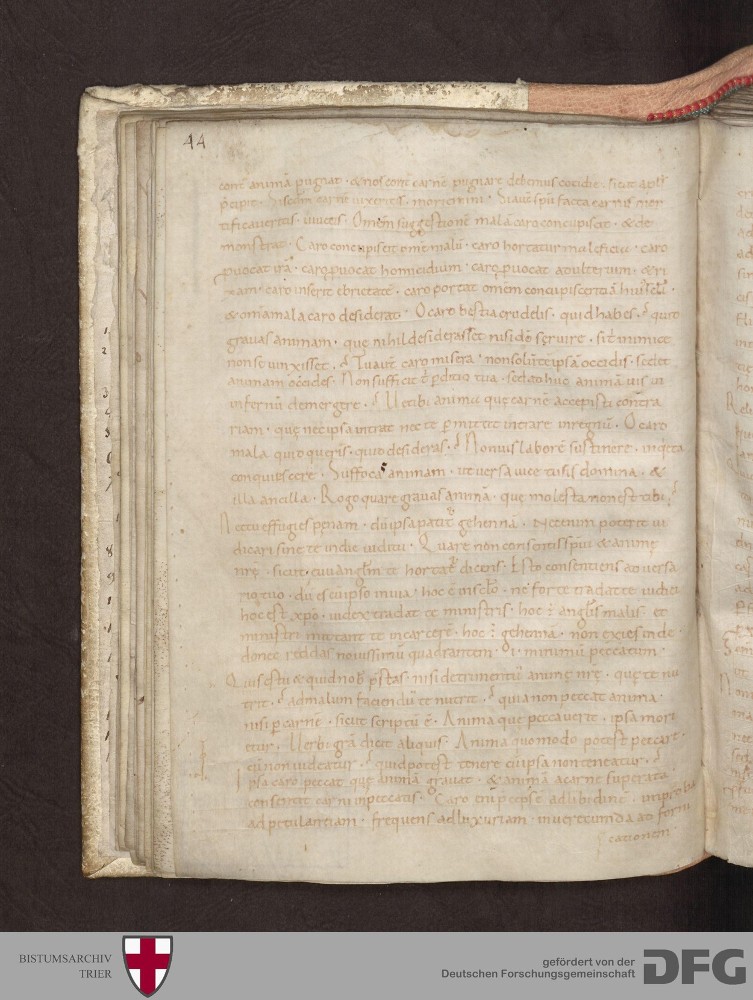 44
cont animā pugnat · & nos cont carnē pugnare debemus cotidie · sicut apls
p̄cipit · Si secdm carnē uixeritis · moriemini · Si aut̄ spū facta carnis mor
tificaueritis · uiuetis · Omem suggestionē malā caro concupiscit · & de
monstrat · Caro concupiscit ome malū · caro hortatur maleficiū · caro
puocat irā · caro puocat homicidium · caro puocat adulterium · & ri
xam · caro inserit ebrietatē · caro portat omem concupiscentiā
& omia mala caro desiderat · O caro bestia crudelis · quid habes · quid
grauas animam · quę nihil desiderasset nisi dō seruire · si t̄ inimice
non se uinxisset · Tu aut̄ caro misera · non solū te ipsā occidis · sed et
animam occides · Non sufficit t̄ pditio tua · sed adhuc animā uis in
infernū demergere · Ue tibi anima quę carnē accepisti contra
riam · quę nec ipsa intrat nec te pmittet intrare in regnū · O caro
mala quid queris · quid desideras · Non uis laborē sustinere · inquieta
conquiescere · Suffocas animam · ut uersa uice tu sis domina · &
illa ancilla · Rogo quare grauas animā · que molesta non est tibi
Nec tu effugies penam · dū ipsa patit̄ gehennā · Nec enim poterit iu
dicari sine te in die iudicii · Quare non consentis spūi & animę
nrę · sicut euuanglm te hortat̄ dicens · Esto consentiens aduersa
rio tuo · dū es cū ipso in uia · hoc ē in sclo · ne forte tradat te iudici
hoc est xpō · iudex tradat te ministris · hoc ē anglis malis et
ministri mittant te in carcerē · hoc ē gehenna · non exies inde
donec reddas nouissimū quadrantem · minimū peccatum
Quis es tu & quid nob pstas · nisi detrimentū animę nrę · quę te nu
trit · ad malum faciendū te nutrit · quia non peccat anima
nisi p carnē · sicut scriptū ē · Anima que peccauerit · ipsa mori
etur · Uerbi grā dicit aliquis · Anima quomodo potest peccare
cū non uideatur · quid potest tenere cū ipsa non teneatur
Ipsa caro peccat quę animā grauat · & anima a carne superata
consentit carni in peccatis · Caro enī p sepse ad libidinē · improba
ad petulantiam · frequens ad luxuriam · inuerecunda ad forni
cationem
BISTUMSARCHIV
TRIER
gefördert von der
Deutschen Forschungsgemeinschaft
DFG